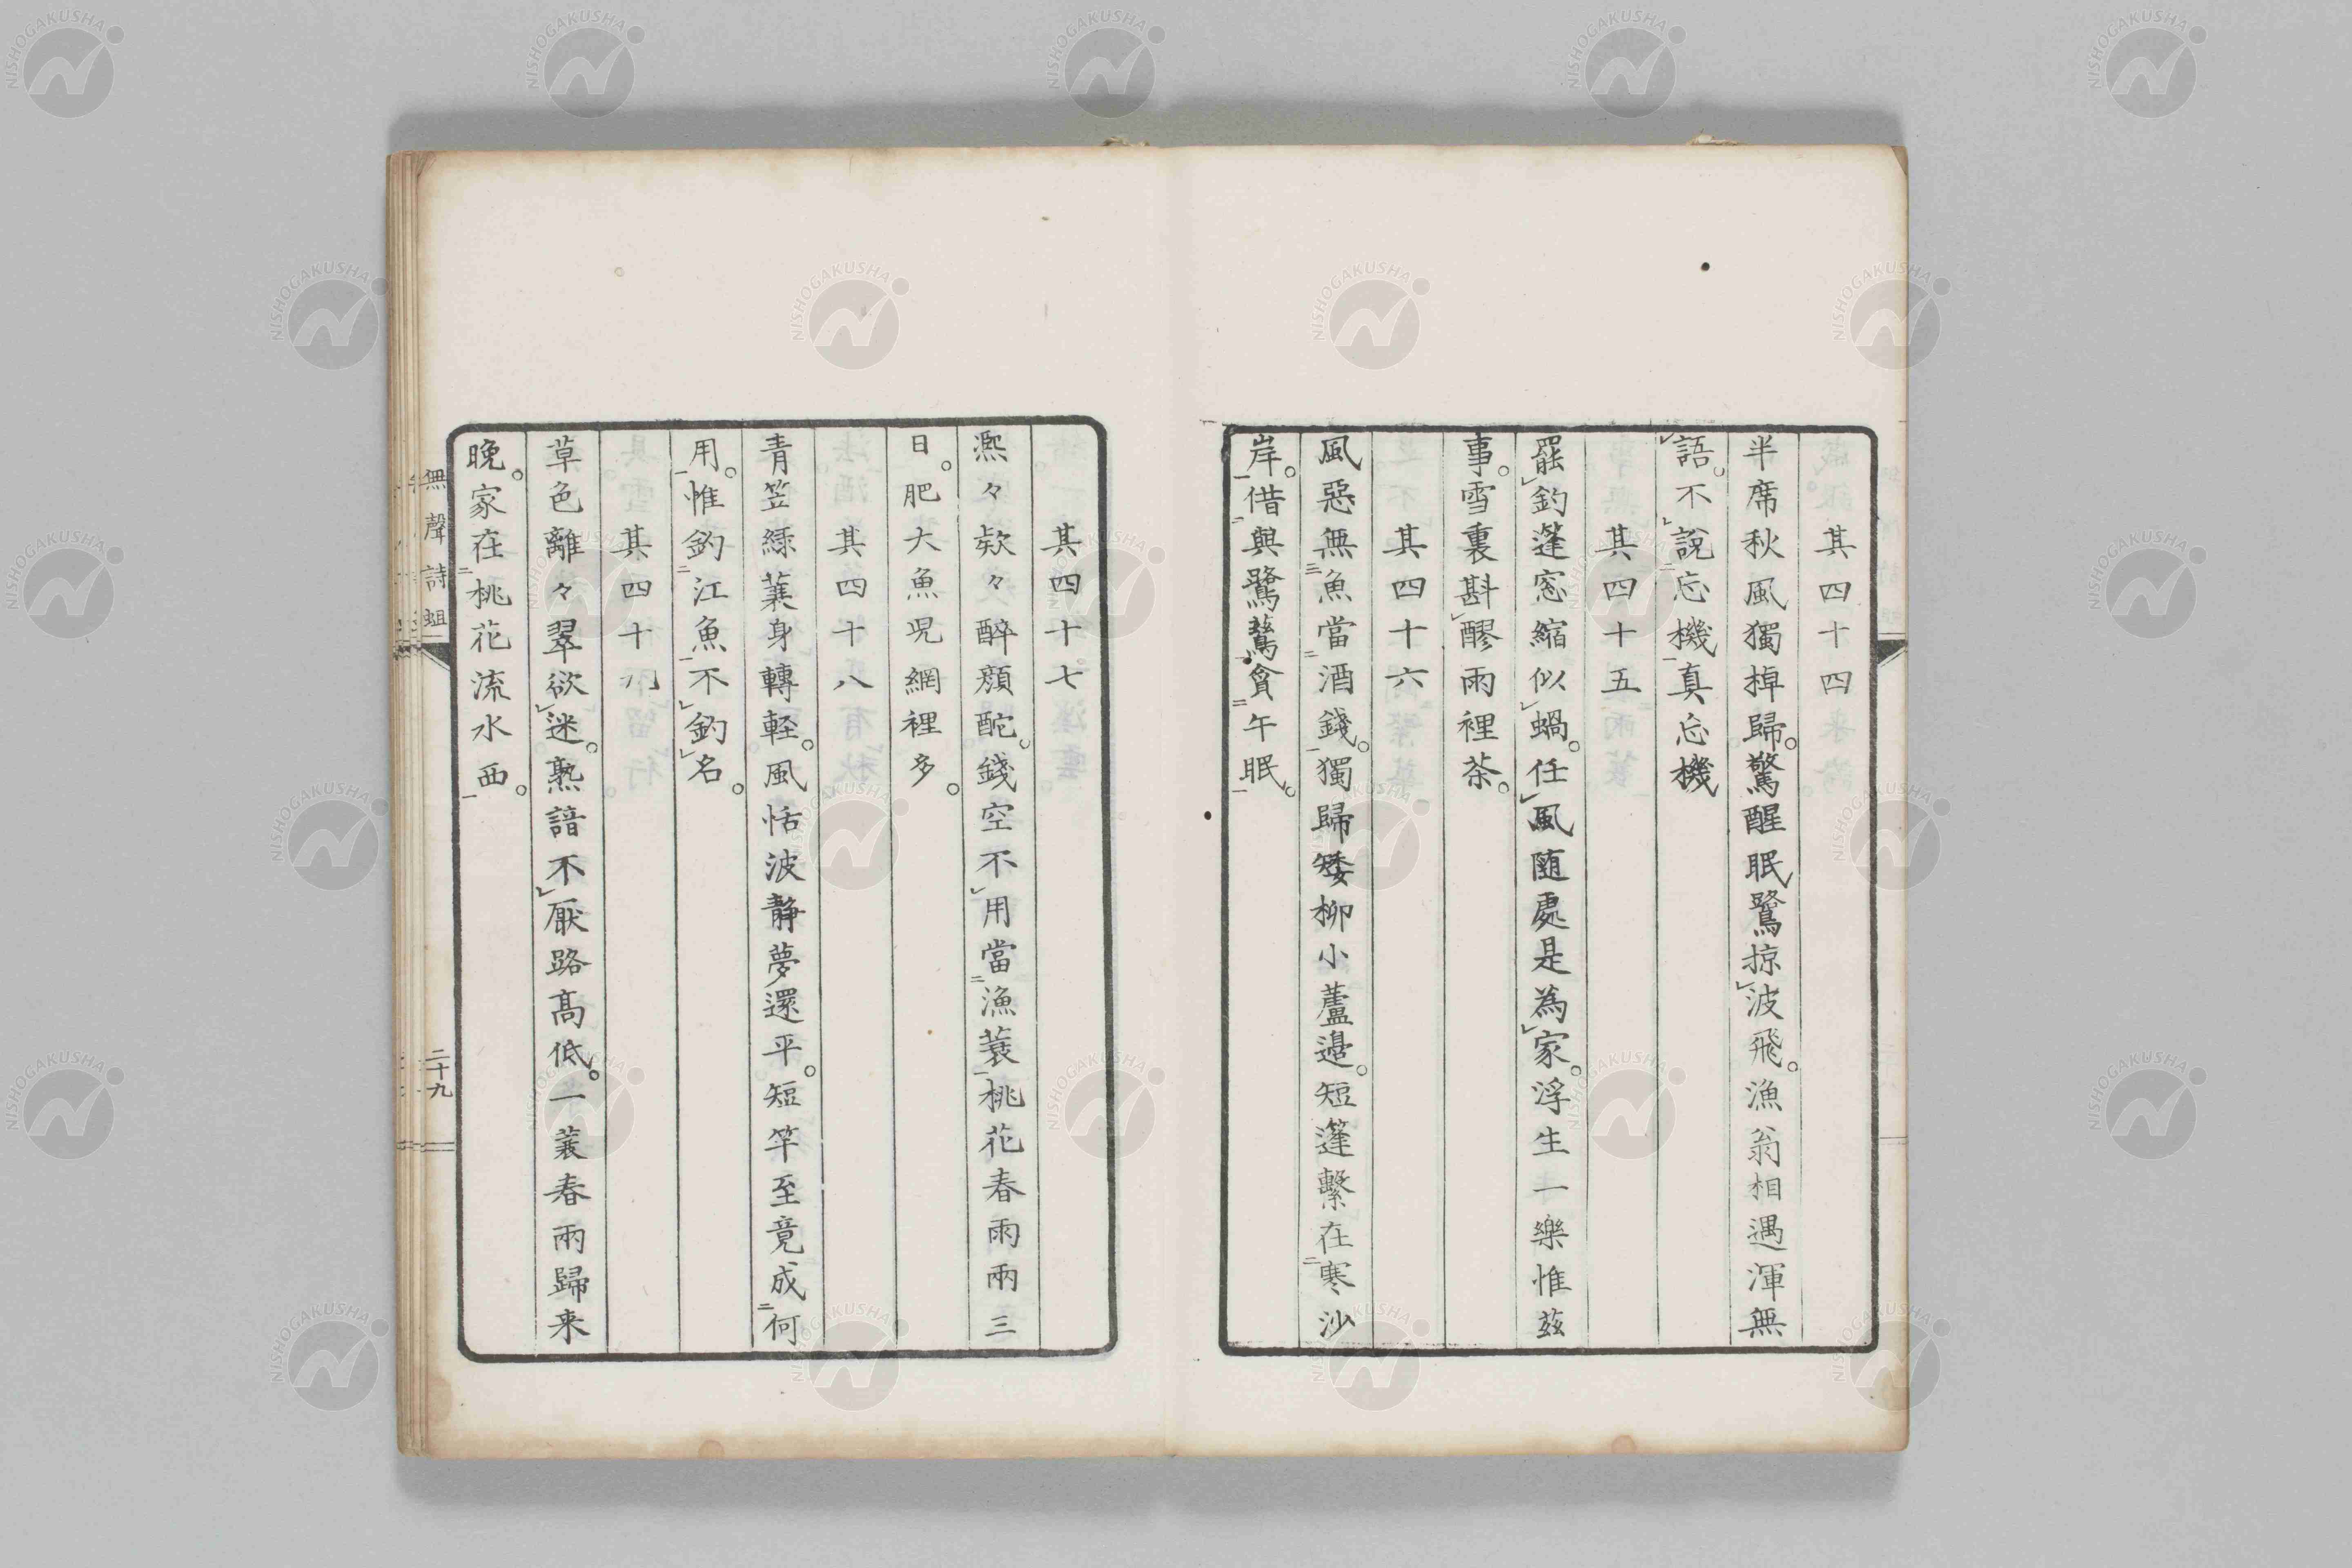 其四十四
半席秋風獨棹歸。驚醒眠鷺掠波飛。漁翁相遇渾無
語。不說忘機真忘機
其四十五
罷釣篷窓縮似蝸。任風随處是為家。浮生一樂惟茲
事。雪裏斟醪雨裡茶。
其四十六
風惡無魚當酒錢。獨歸矮柳小蘆邉。短篷繫在寒沙
岸。借與鷺鷥貪午眠。
其四十七
凞々欸々醉顔酡。錢空不用當漁蓑。桃花春雨兩三
日。肥大魚児網裡多。
其四十八
青笠緑蓑身轉軽。風恬波靜夢還平。短竿至竟成何
用。惟釣江魚不釣名。
其四十九
草色離々翠欲迷。熟諳不厭路髙低。一蓑春雨歸来
晩。家在桃花流水西。
無聲詩
二十九
NISHOGAKUSHA